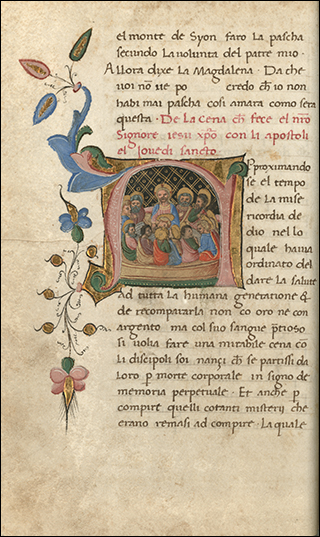 el monte de Syon faro la pascha
secundo la volunta del patre mio ·
Allora dixe la Magdalena · Da che
voi nō ve po credo ch̄ io non
habi mai pascha cosi amara como sera
questa · De La Cena ch̄ fece el nr̄o
Signore iesu xp̄o con li apostoli
el iovedi sancto ·
Aproximando
se el tempo
de la mise
ricordia de
dio nel lo
quale havia
ordinato del
dare la salute
ad tutta la humana generatione &
de recompararla non co oro ne con
argento ma col suo sangue p̄tioso
si volia fare una mirabile cena co
li discipoli soi nançi ch̄ se partissi da
loro p̄ morte corporale in signo de
memoria perpetuale · Et anche p̄
compire quelli cotanti misterii che
erano remasi ad compire · La quale